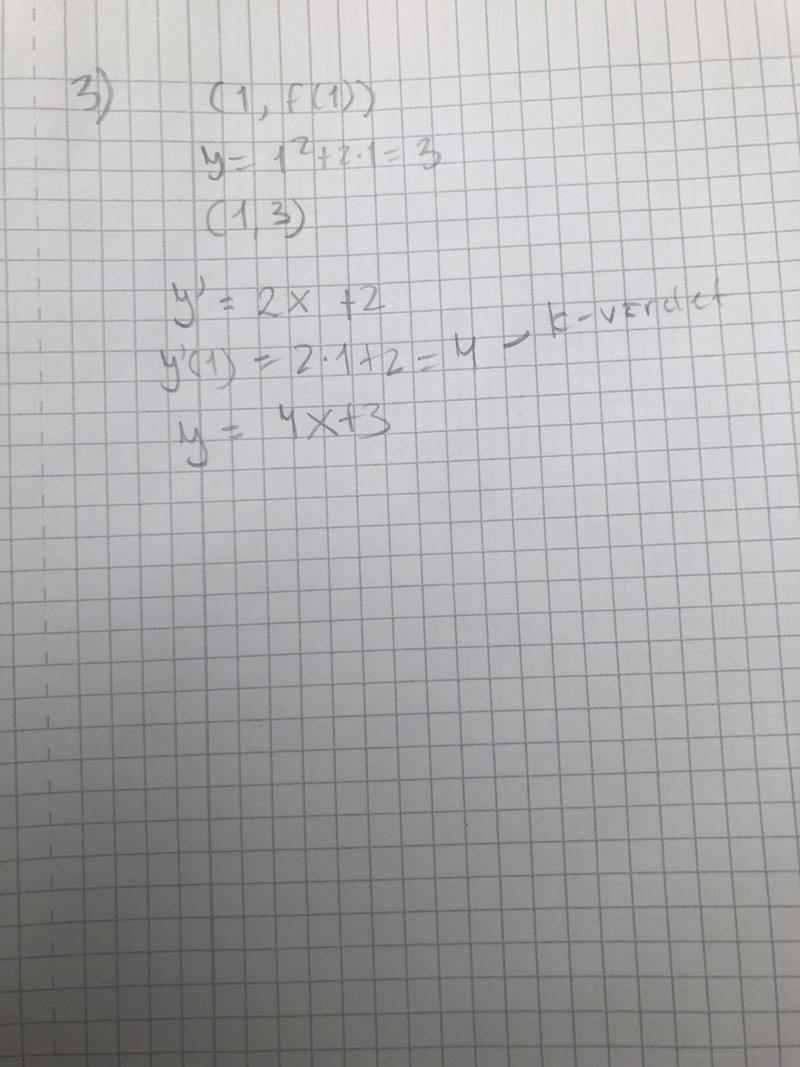 3) (1, f(1))
y = 1²+2·1 = 3
(1,3)
y' = 2x +2
y'(1) = 2·1+2 = 4 - k-värdet
y = 4x+3